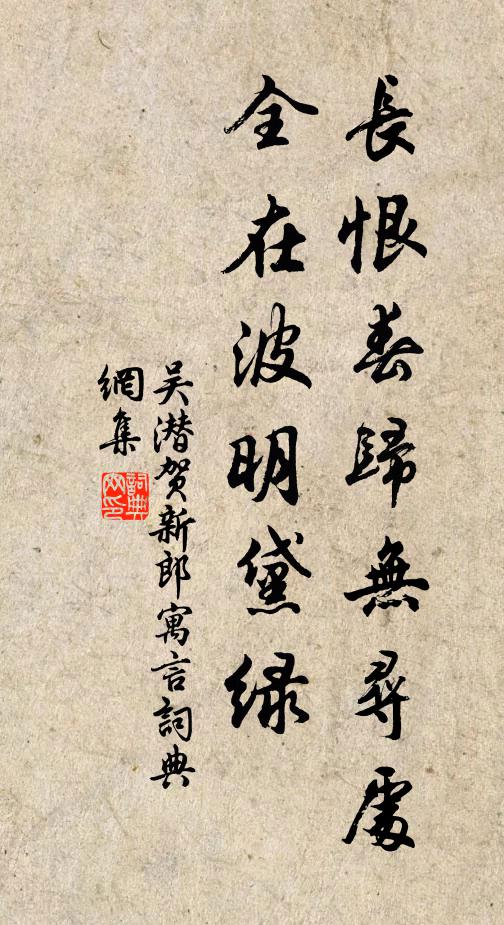 長恨春歸無尋處
全在波明黛緑
吴潜贺新郎寓言詞典
網集
詞典
网印